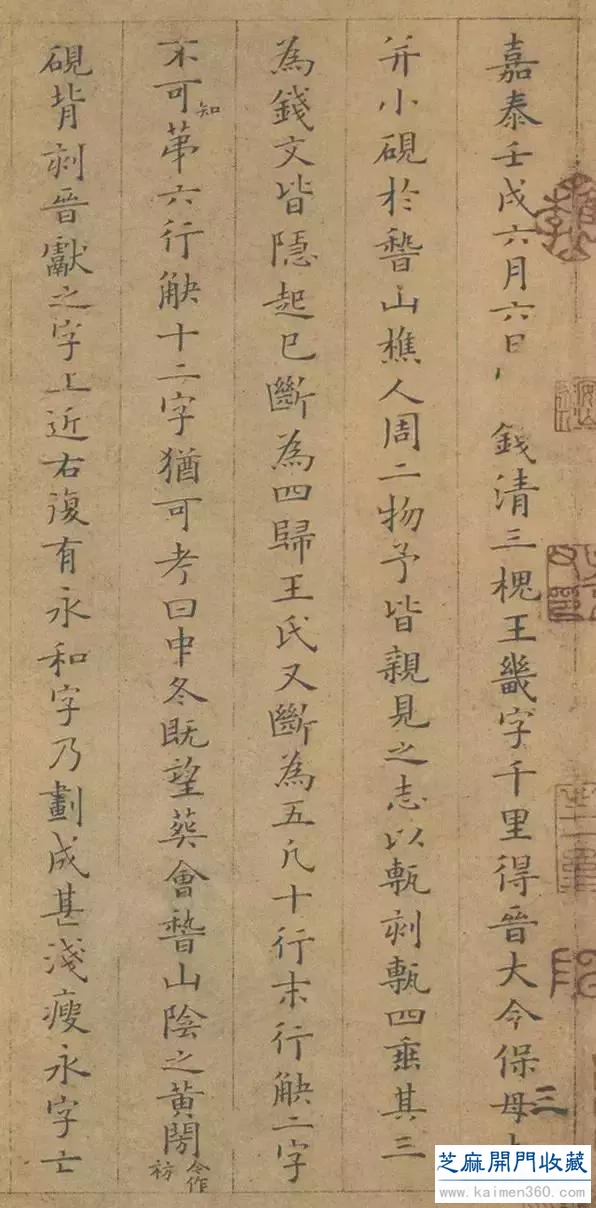 嘉泰壬戌六月六日錢清三槐王畿字千里得晉大令保母
并小硯於稽山樵人周二物予皆親見之志以甎刻甎四垂其三
為錢文皆隱起已斷為四歸王氏又斷為五凡十行末行缺二字
不可知第六行缺十二字猶可考曰中冬既望葬會稽山陰之黃閍今作祊
硯背刻晉獻之字上近右復有永和字乃劃成甚淺瘦永字亡
三
芝麻開門收藏
www.kaimen360.com